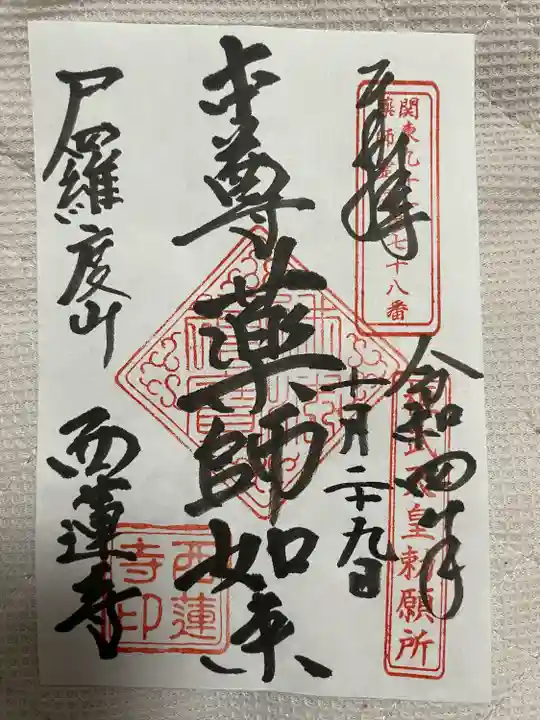 奉拝
関東九十一
七十八番
令和四年
十月二十九日
天皇勅願所
本尊
薬師如来
尸羅度山
西蓮寺
西蓮
寺印